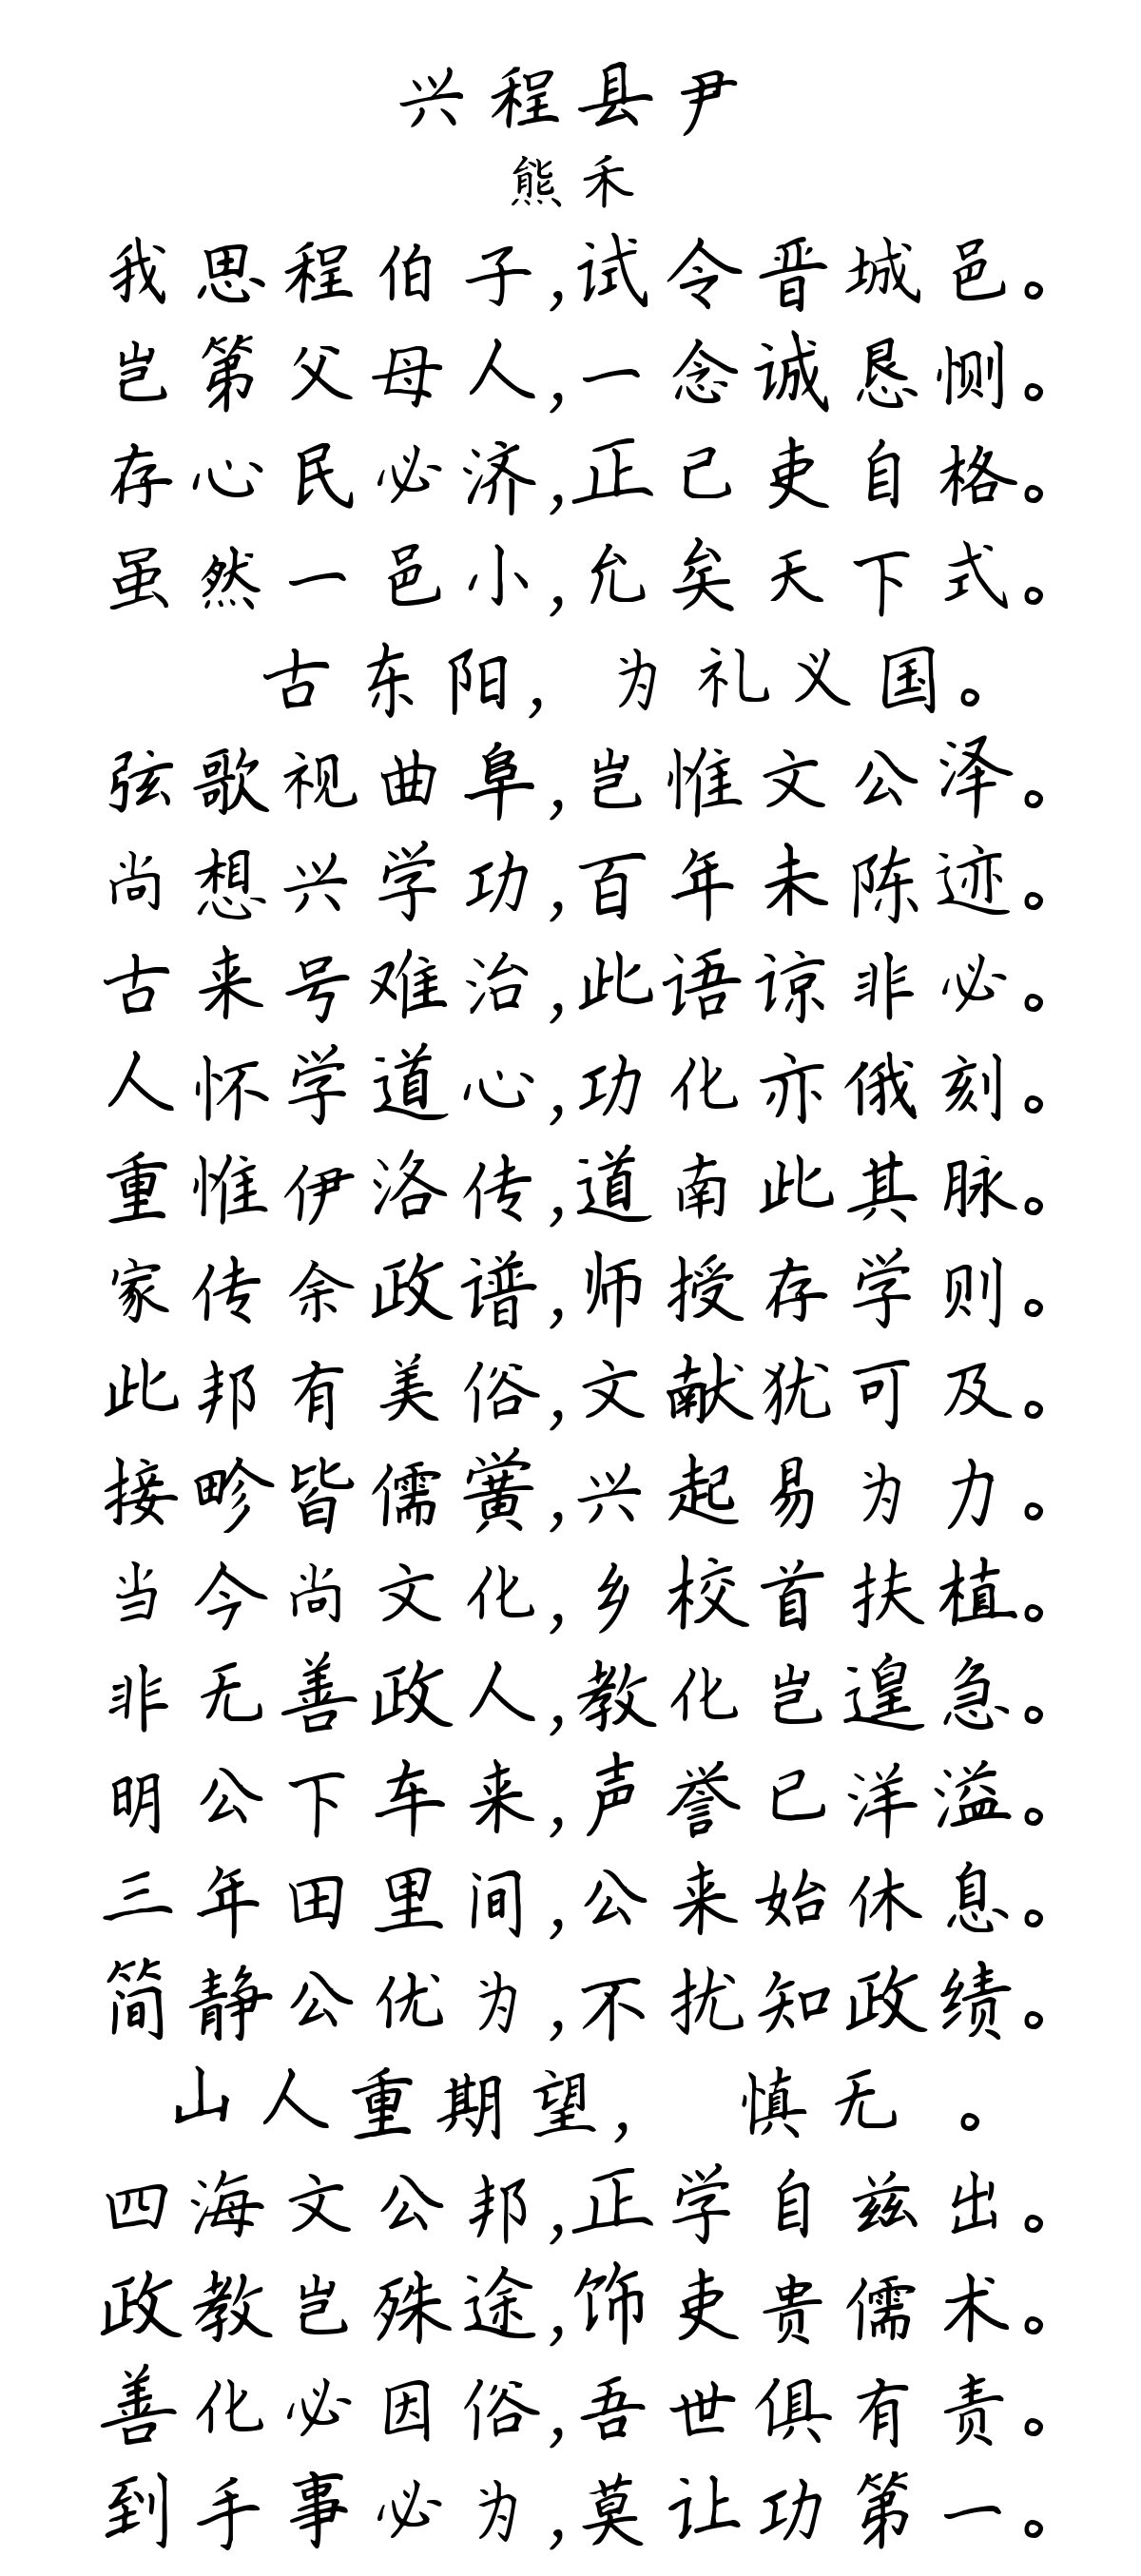 兴程县尹
熊禾
我思程伯子,试令晋城邑。
岂第父母人,一念诚恳恻。
存心民必济,正己吏自格。
虽然一邑小,允矣天下式。
古东阳,为礼义国。
弦歌视曲阜,岂惟文公泽。
尚想兴学功,百年未陈迹。
古来号难治,此语谅非必。
人怀学道心,功化亦俄刻。
重惟伊洛传,道南此其脉。
家传余政谱,师授存学则。
此邦有美俗,文献犹可及。
接畛皆儒黉,兴起易为力。
当今尚文化,乡校首扶植。
非无善政人,教化岂遑急。
明公下车来,声誉已洋溢。
三年田里间,公来始休息。
简静公优为,不扰知政绩。
山人重期望,慎无 。
四海文公邦,正学自兹出。
政教岂殊途,饰吏贵儒术。
善化必因俗,吾世俱有责。
到手事必为,莫让功第一。